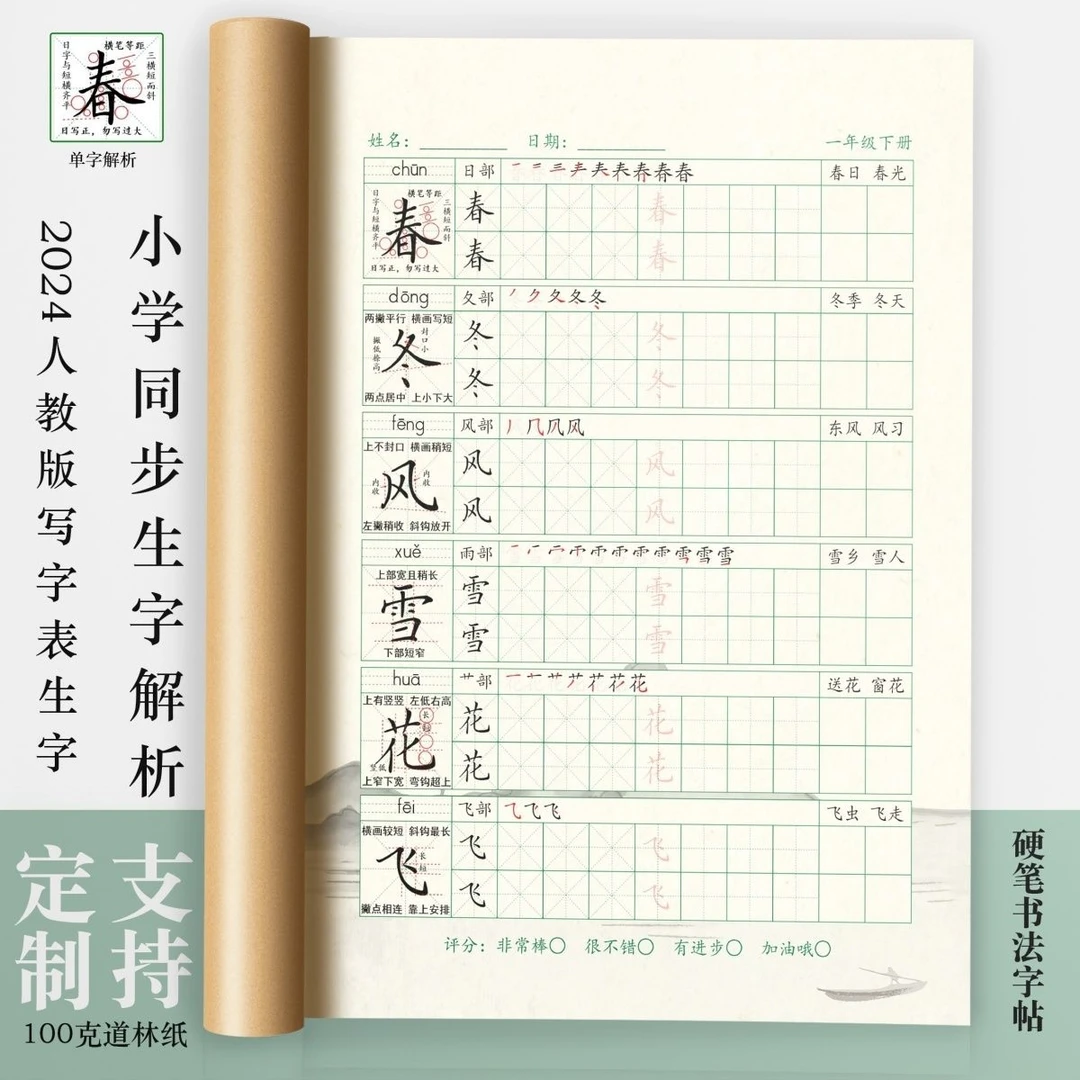 横笔等距
日字与短横齐平
三横短而斜
春
日写正，勿写过大
单字解析
小学同步生字解析
2024人教版写字表生字
支持
定制
100克道林纸
硬笔书法字帖
姓名：
日期：
一年级下册
chūn
日部
春日 春光
横笔等距
日字与短横齐平
三横短而斜
春
日写正，勿写过大
春
春
春
春
dōng
夂部
冬季 冬天
两撇平行 横画写短
封口小
撇低捺高
冬
两点居中 上小下大
冬
冬
冬
冬
fēng
风部
东风 风习
上不封口 横画稍短
内收
内收
风
左撇稍收 斜钩放开
风
风
风
风
xuě
雨部
雪乡 雪人
上部宽且稍长
雪
下部短窄
雪
雪
雪
雪
huā
艹部
送花 窗花
上有竖竖 左低右高
长
短
竖低
花
上窄下宽 弯钩超上
花
花
花
花
fēi
飞部
飞虫 飞走
横画较短 斜钩最长
长
短
飞
撇点相连 靠上安排
飞
飞
飞
飞
评分：非常棒○ 很不错○ 有进步○ 加油哦○